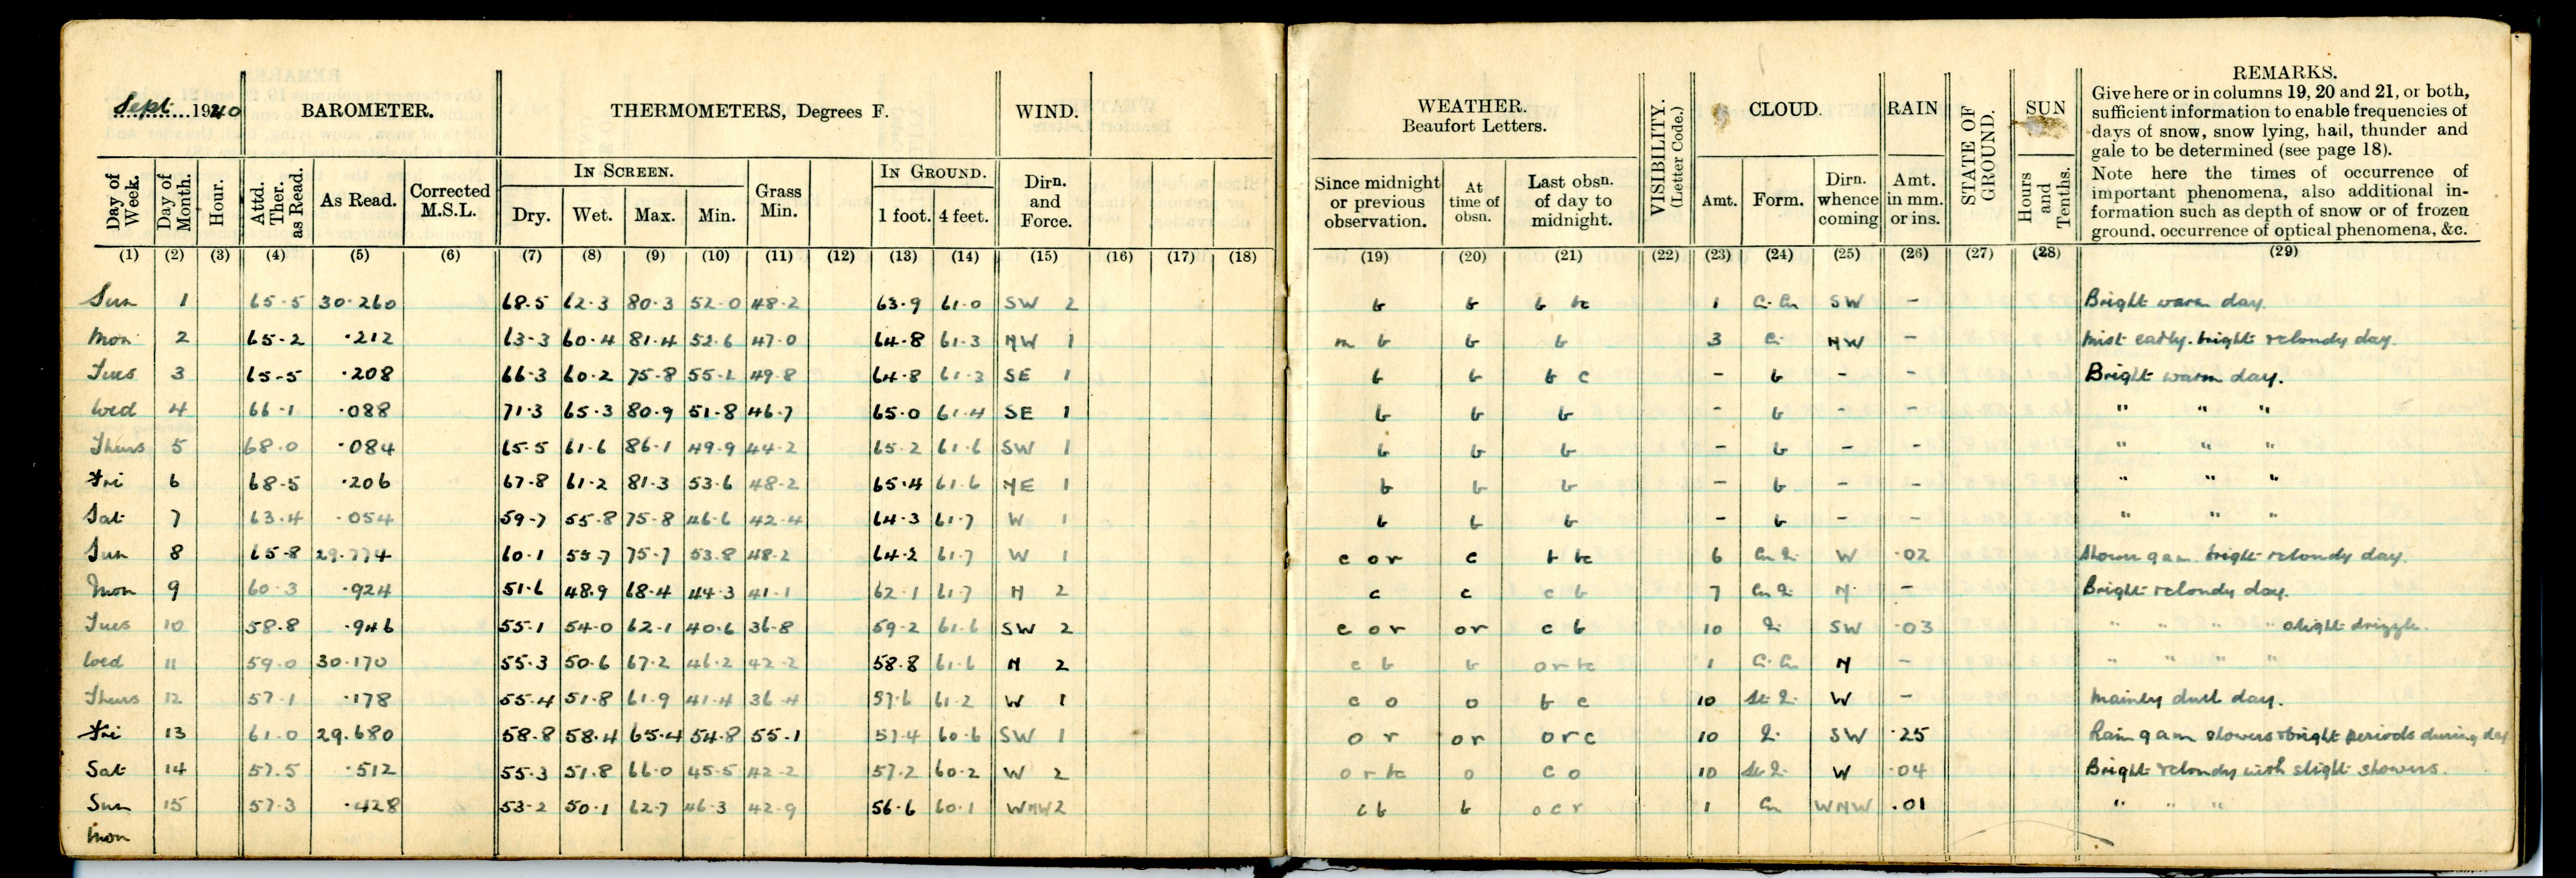 Sept. 1940 BAROMETER. THERMOMETERS, Degrees F. WIND. WEATHER. Beaufort Letters. VISIBILITY. (Letter Code.) CLOUD. RAIN STATE OF GROUND. SUN REMARKS.
Give here or in columns 19, 20 and 21, or both,
sufficient information to enable frequencies of
days of snow, snow lying, hail, thunder and
gale to be determined (see page 18).
Note here the times of occurrence of
important phenomena, also additional in-
formation such as depth of snow or of frozen
ground, occurrence of optical phenomena, &c.
Day of Week. Day of Month. Hour. Attd. Ther. as Read. As Read. Corrected M.S.L. IN SCREEN. Dry. Wet. Max. Min. Grass Min. IN GROUND. 1 foot. 4 feet. Dirn. and Force. Since midnight or previous observation. At time of obsn. Last obsn. of day to midnight. Amt. Form. Dirn. whence coming Amt. in mm. or ins. Hours and Tenths.
(1) (2) (3) (4) (5) (6) (7) (8) (9) (10) (11) (12) (13) (14) (15) (16) (17) (18) (19) (20) (21) (22) (23) (24) (25) (26) (27) (28) (29)
Sun 1 65.5 30.260 68.5 62.3 80.3 52.0 48.2 63.9 61.0 SW 2 b b b bc 1 SW - Bright warm day.
Mon 2 65.2 .212 63.3 60.4 81.4 52.6 47.0 64.8 61.3 NW 1 m b b b 3 NW - Mist early. bright & cloudy day.
Tues 3 65.5 .208 66.3 60.2 75.8 55.1 49.8 64.8 61.3 SE 1 b b b c - b - - Bright warm day.
Wed 4 66.1 .088 71.3 65.3 80.9 51.8 46.7 65.0 61.4 SE 1 b b b - b - - " " "
Thurs 5 68.0 .084 65.5 61.6 86.1 49.9 44.2 65.2 61.6 SW 1 b b b - b - - " " "
Fri 6 68.5 .206 67.8 61.2 81.3 53.6 48.2 65.4 61.6 NE 1 b b b - b - - " " "
Sat 7 63.4 .054 59.7 55.8 75.8 46.6 42.4 64.3 61.7 W 1 b b b - b - - " " "
Sun 8 65.8 29.774 60.1 55.7 75.7 53.8 48.2 64.2 61.7 W 1 c o r c b bc 6 W .02 Shower 9am. bright & cloudy day.
Mon 9 60.3 .924 51.6 48.9 68.4 44.3 41.1 62.1 61.7 N 2 c c c b 7 N - Bright & cloudy day.
Tues 10 58.8 .946 55.1 54.0 62.1 40.6 36.8 59.2 61.6 SW 2 c o r or c b 10 SW .03 " " " " slight drizzle.
Wed 11 59.0 30.170 55.3 50.6 67.2 46.2 42.2 58.8 61.6 N 2 c b b o r bc 1 N - " " " "
Thurs 12 57.1 .178 55.4 51.8 61.9 41.4 36.4 57.6 61.2 W 1 c o o b c 10 W - Mainly dull day.
Fri 13 61.0 29.680 58.8 58.4 65.4 54.8 55.1 57.4 60.6 SW 1 o r or o r c 10 SW .25 Rain 9am showers & bright periods during day
Sat 14 57.5 .512 55.3 51.8 66.0 45.5 42.2 57.2 60.2 W 2 o r bc o c o 10 W .04 Bright & cloudy with slight showers.
Sun 15 57.3 .428 53.2 50.1 62.7 46.3 42.9 56.6 60.1 WNW 2 c b b o c r 1 WNW .01 " " "
Mon